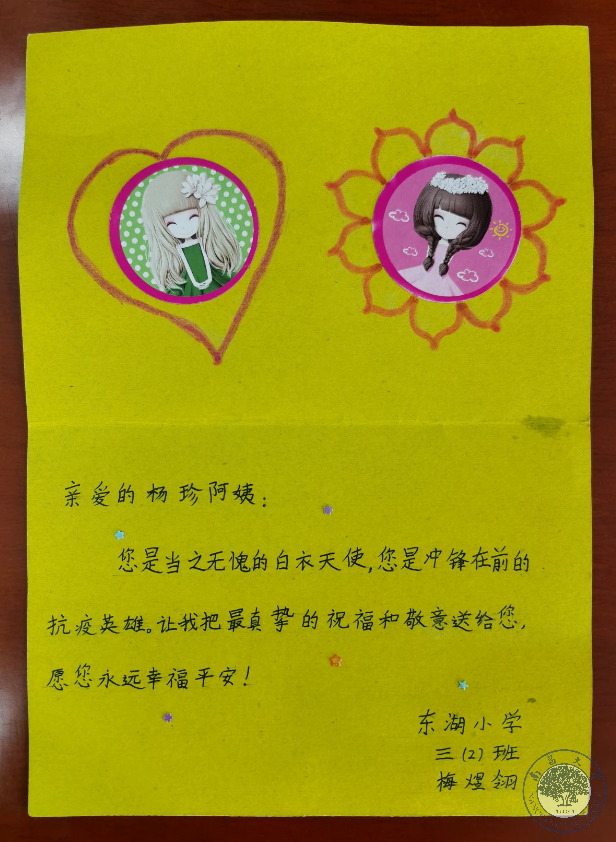 亲爱的杨珍阿姨:
您是当之无愧的白衣天使,您是冲锋在前的
抗疫英雄。让我把最真挚的祝福和敬意送给您,
愿您永远幸福平安!
东湖小学
三(2)班
梅煜翎
南昌大